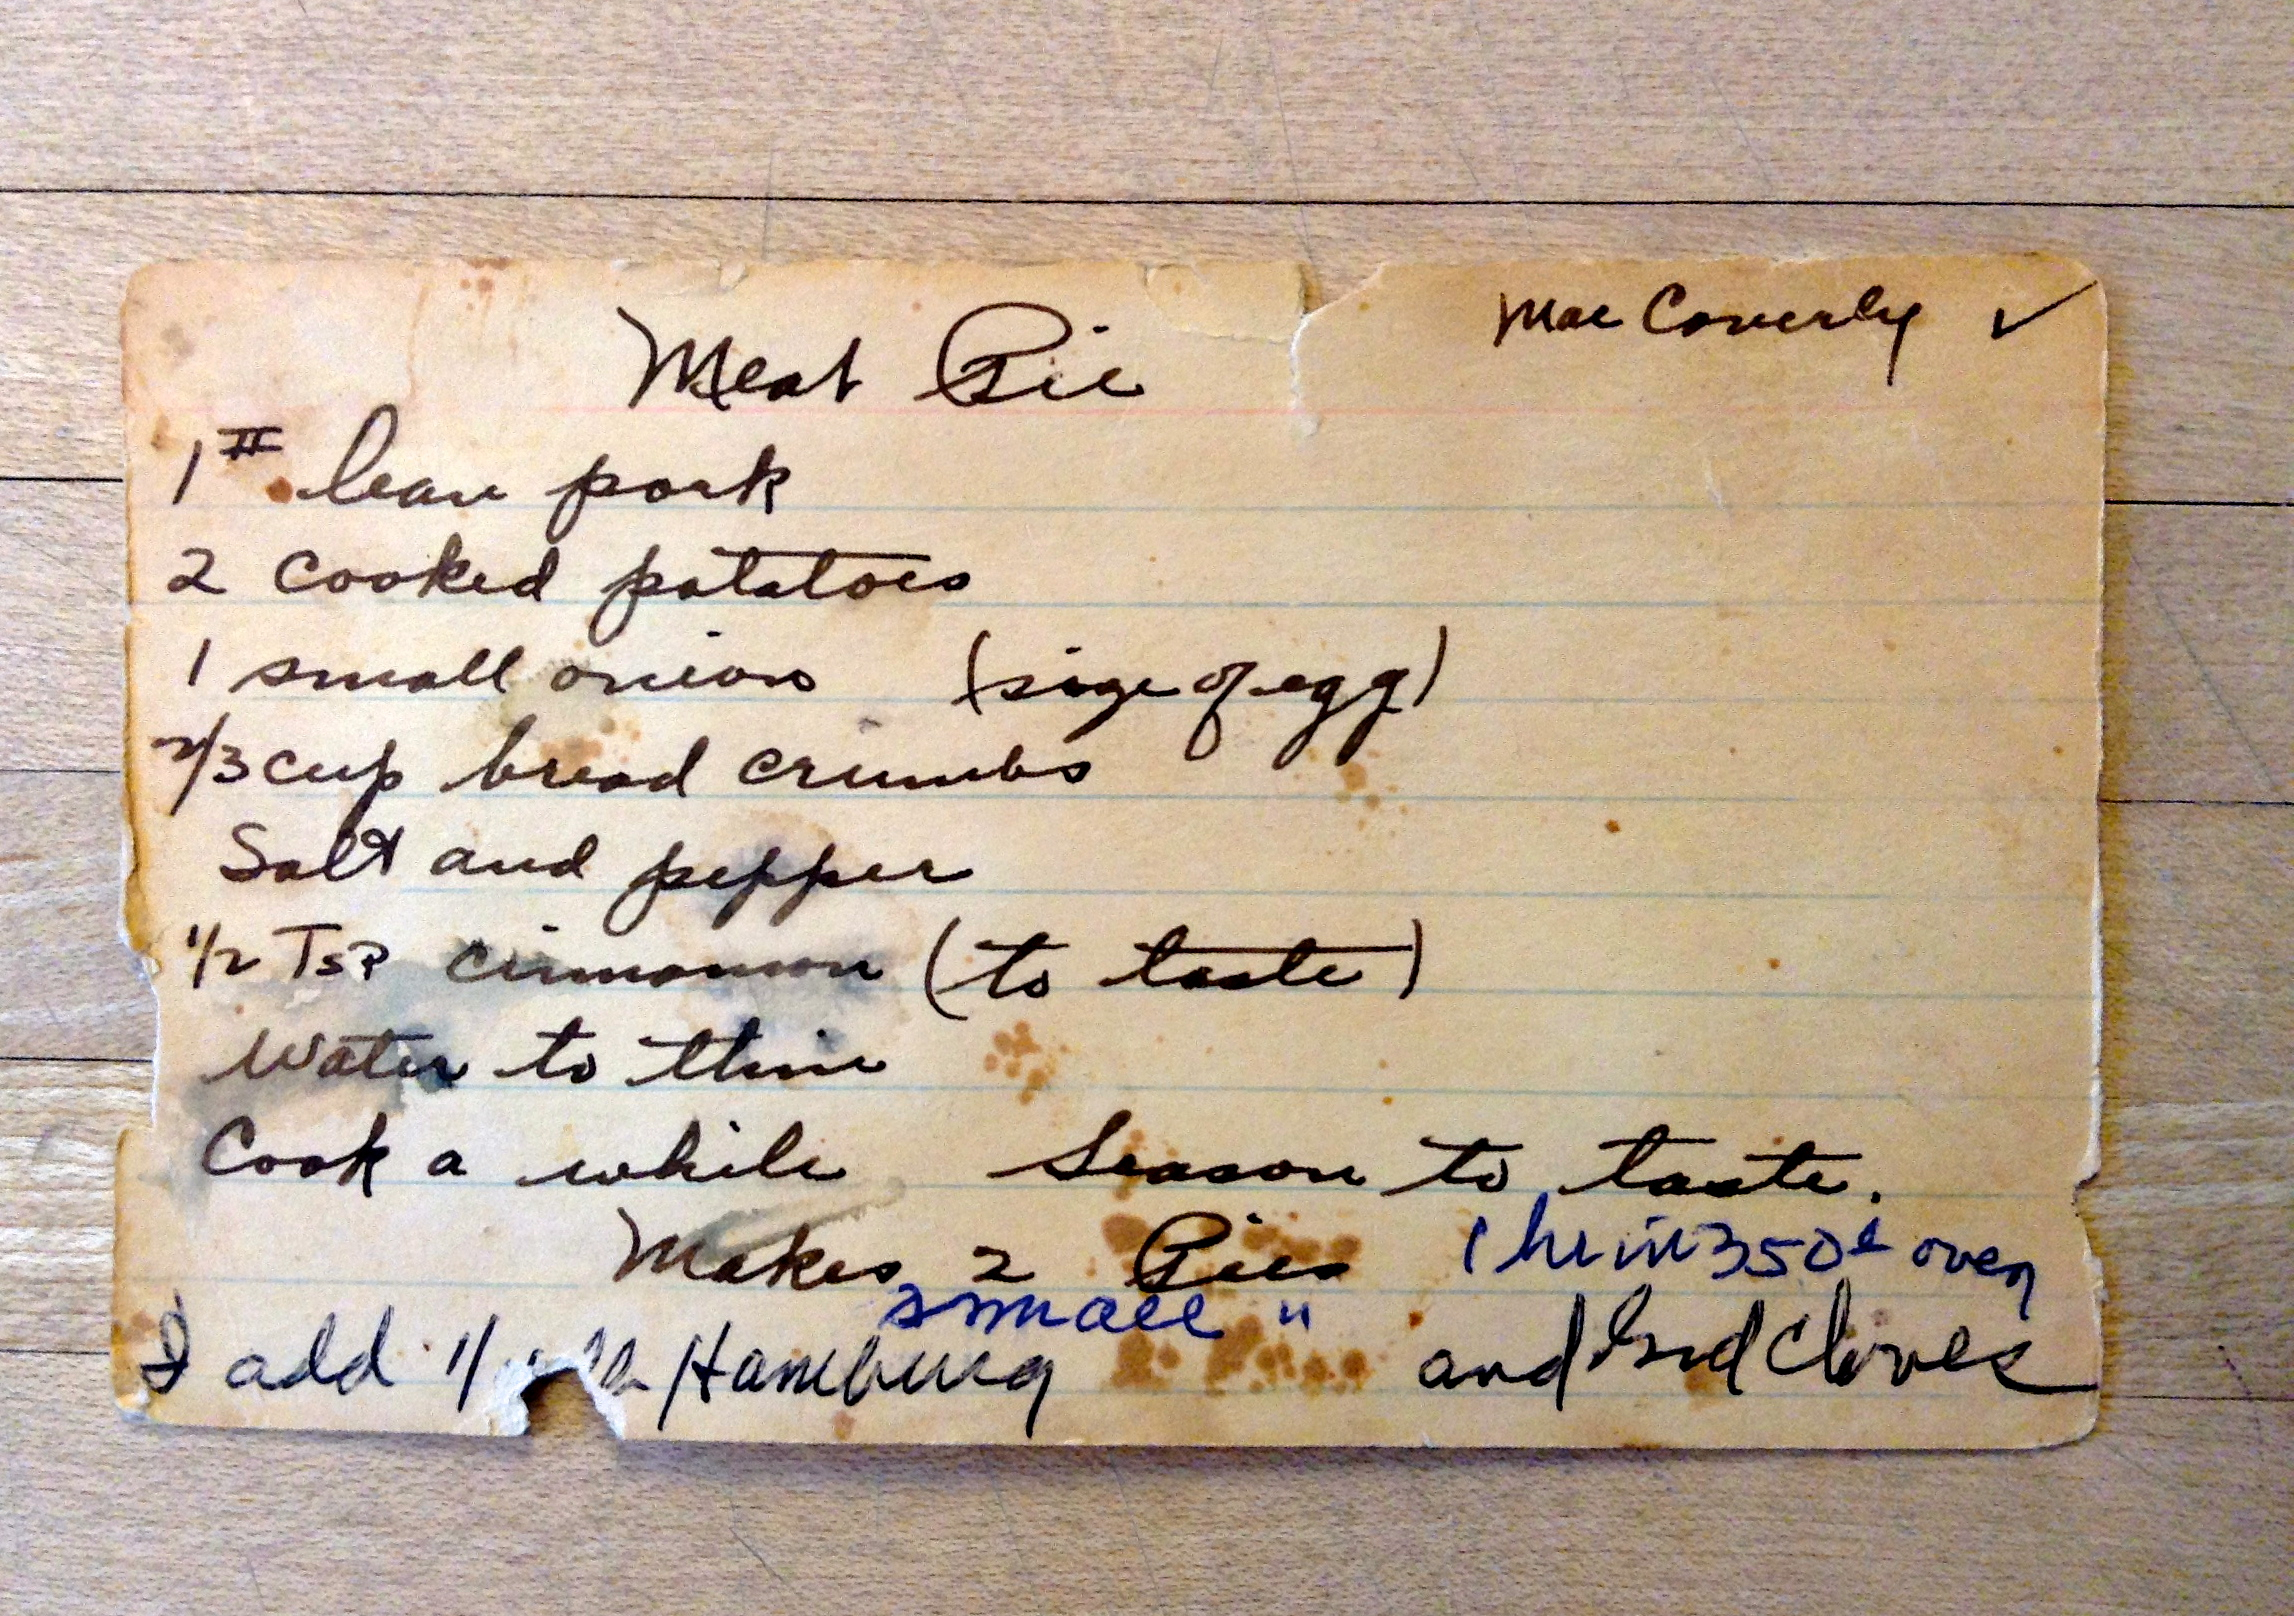 Mae Coverly ✓
Meat Pie
1# lean pork
2 cooked potatoes
1 small onion (size of egg)
2/3 cup bread crumbs
Salt and pepper
1/2 Tsp cinnamon (to taste)
Water to thin
Cook a while Season to taste.
Makes 2 Pies 1 hr in 350° oven
small "
I add Hamburg and Grd Cloves